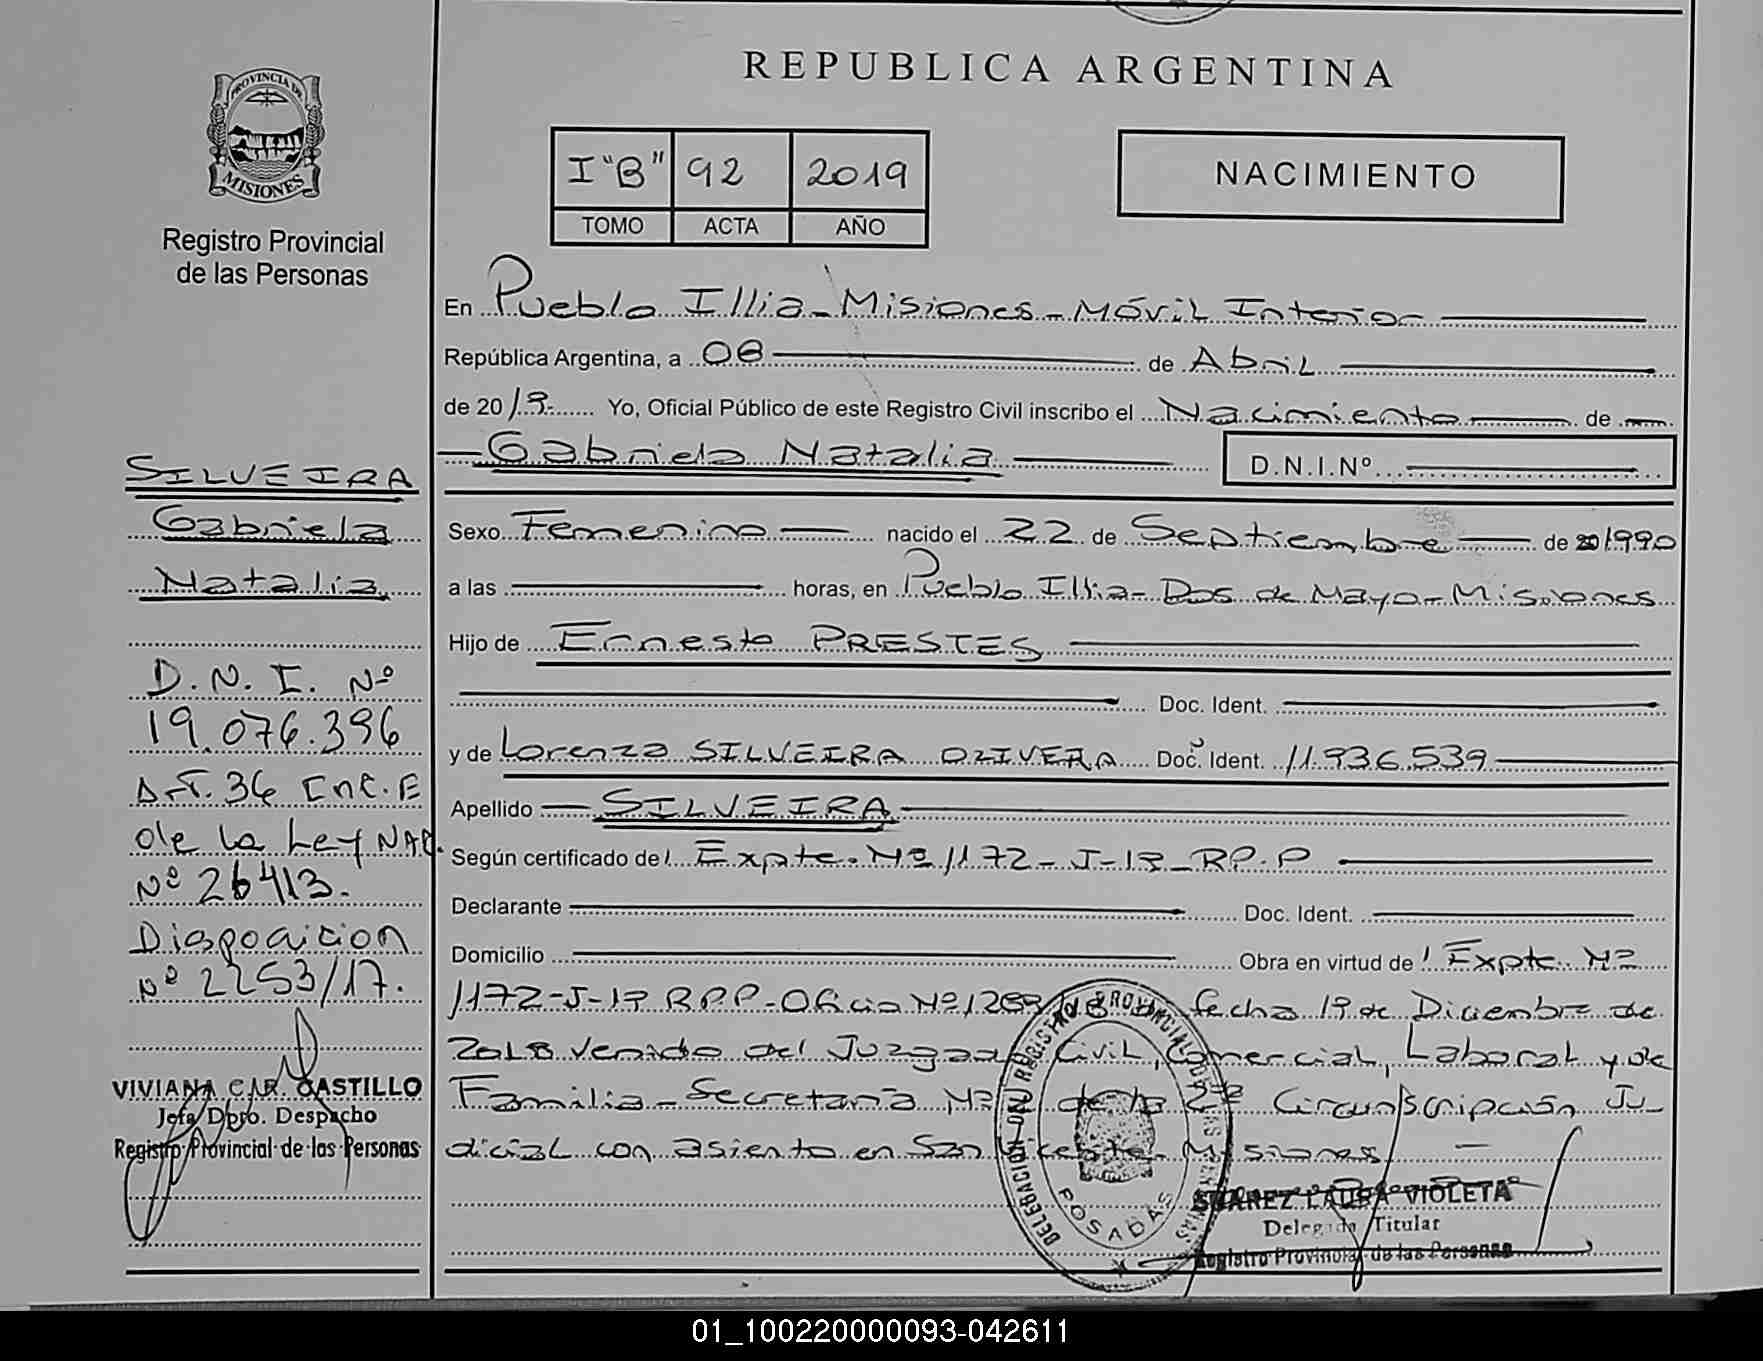 REPUBLICA ARGENTINA
PROVINCIA DE
MISIONES
Registro Provincial
de las Personas
I "B" 92 2019
TOMO ACTA AÑO
NACIMIENTO
En Pueblo Illia - Misiones - Móvil Interior
República Argentina, a 08 de Abril
de 2019.- Yo, Oficial Público de este Registro Civil inscribo el Nacimiento de
Gabriela Natalia D.N.I.Nº
Sexo Femenino nacido el 22 de Septiembre de 20/1990
a las horas, en Pueblo Illia - Dos de Mayo - Misiones
Hijo de Ernesto PRESTES
Doc. Ident.
y de Lorenza SILVEIRA OLIVERA Doc. Ident. 11.936.539
Apellido SILVEIRA
Según certificado del Expte. Nº 1172-J-17-RP.P
Declarante Doc. Ident.
Domicilio Obra en virtud de / Expte. Nº
1172-J-17 R.P.P-Oficio Nº fecha 19 de Diciembre de
2018 venido del Juzgado Civil, Comercial, Laboral y de
Familia - Secretaria Nº de la 2da Circunscripción Ju_
dicial con asiento en San Vicente - Misiones
SILVEIRA
Gabriela
Natalia
D.N.I. Nº
19.076.396
Art. 36 Inc. E
de la Ley NAC.
Nº 26413.
Disposicion
Nº 2253/17.
VIVIANA CAR. CASTILLO
Jefa Dpto. Despacho
Registro Provincial de las Personas
DELEGACION DEL REGISTRO PROVINCIAL DE LAS PERSONAS
POSADAS
SUAREZ LAURA VIOLETA
Delegada Titular
Registro Provincial de las Personas
01_100220000093-042611